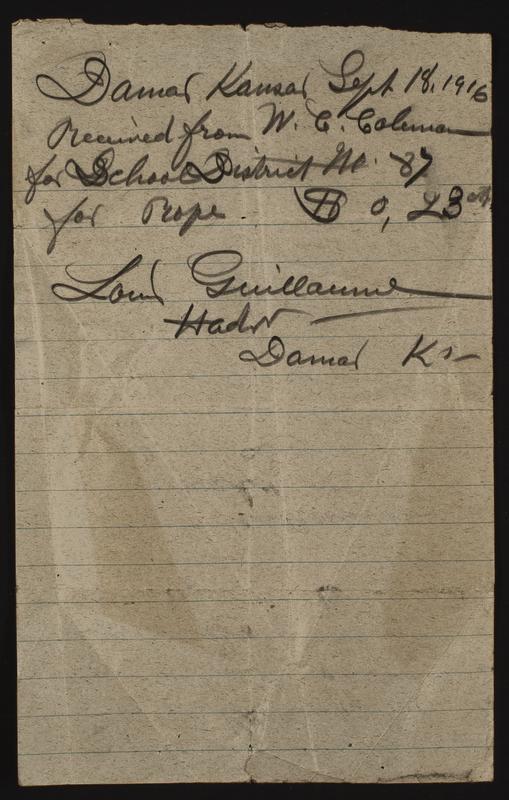 Damar Kansas Sept 18, 1916
Received from W. E. Coleman
for School District No. 87
for Rope $ 0,23 cts
Louis Guillaume
Hadw
Damar Ks